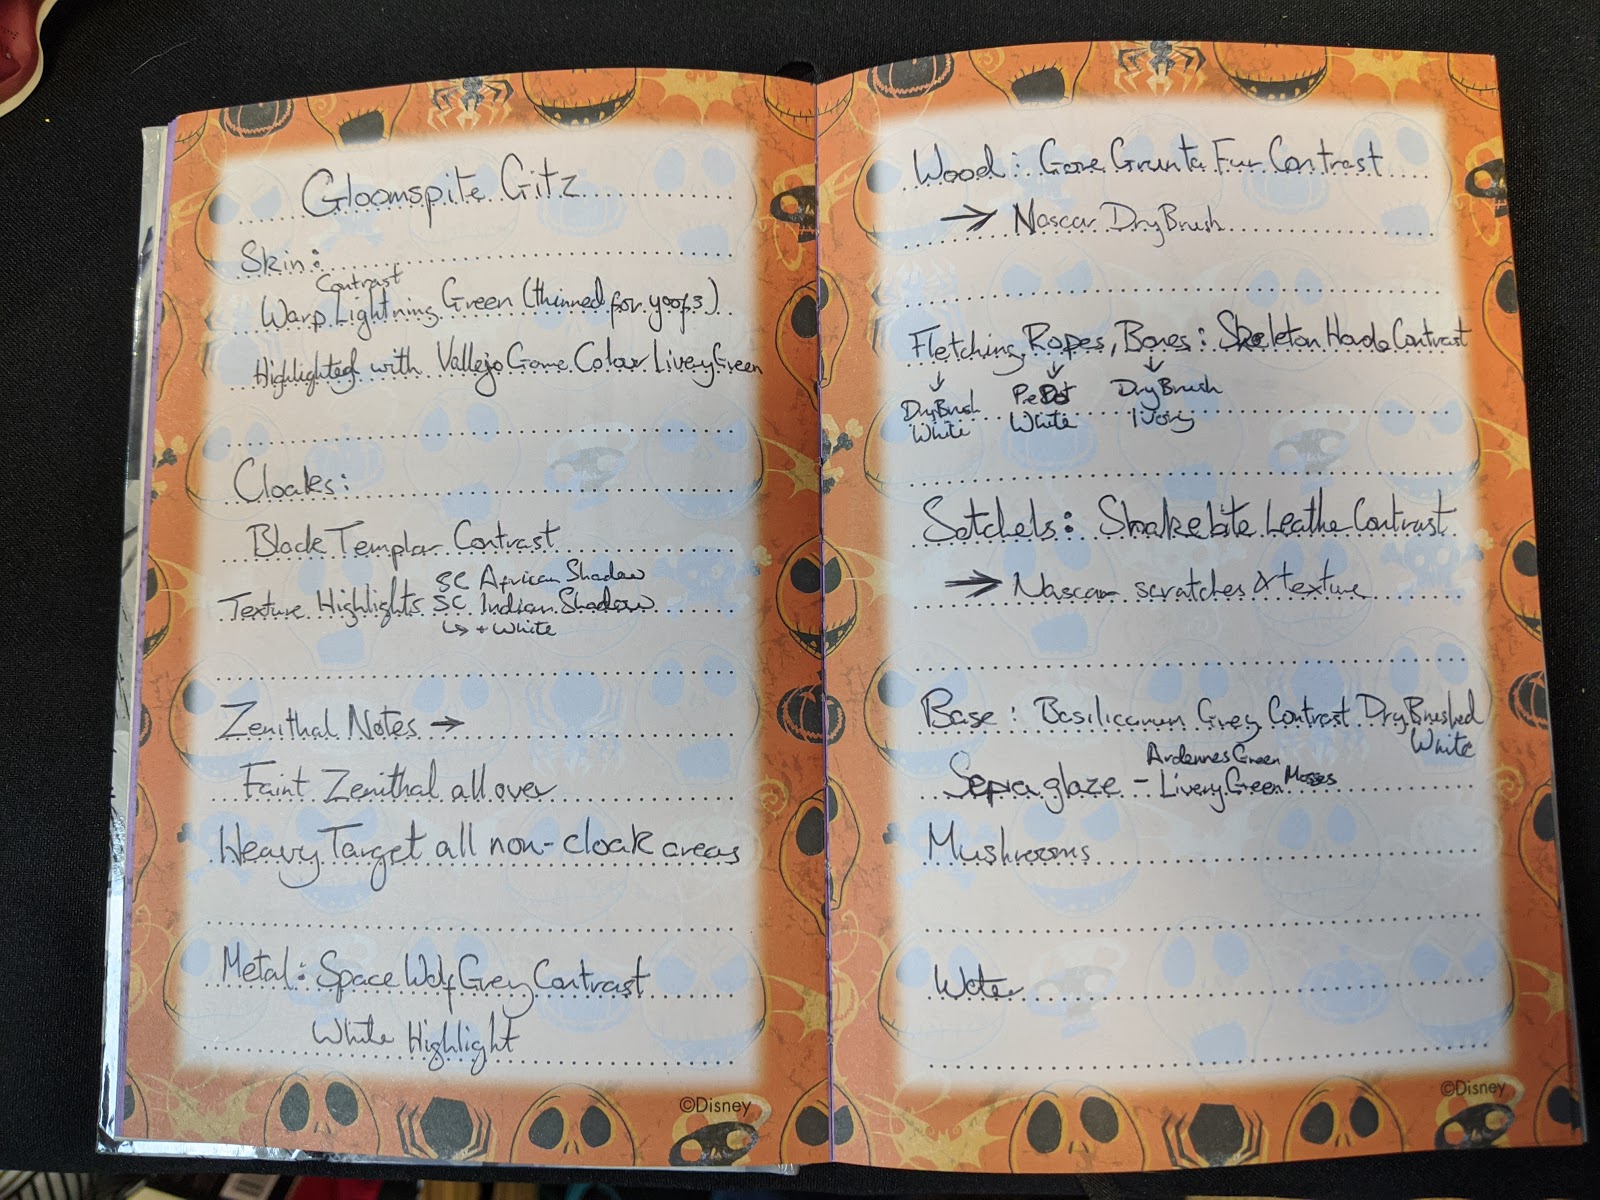 Gloomspite Gitz
Skin:
Contrast
Warp Lightning Green (thinned for yoofs)
Highlighted with Vallejo Game Colour Livery Green
Cloaks:
Black Templar Contrast
SC African Shadow
Texture Highlights SC Indian Shadow
↳ + White
Zenithal Notes →
Faint Zenithal all over
Heavy Target all non-cloak areas
Metal: Space Wolf Grey Contrast
White Highlight
©Disney
Wood: Gore Grunta Fur Contrast
→ Nascar DryBrush
Fletching, Ropes, Bones: Skeleton Horde Contrast
↓ ↓ ↓
DryBrush White
White
DryBrush Ivory
Satchels: Snakebite Leathe Contrast
→ Nascar scratches & texture
Base: Basilicanum Grey Contrast DryBrushed
White
Ardennes Green
Sepia glaze - Livery Green Mosses
Mushrooms
Water
©Disney